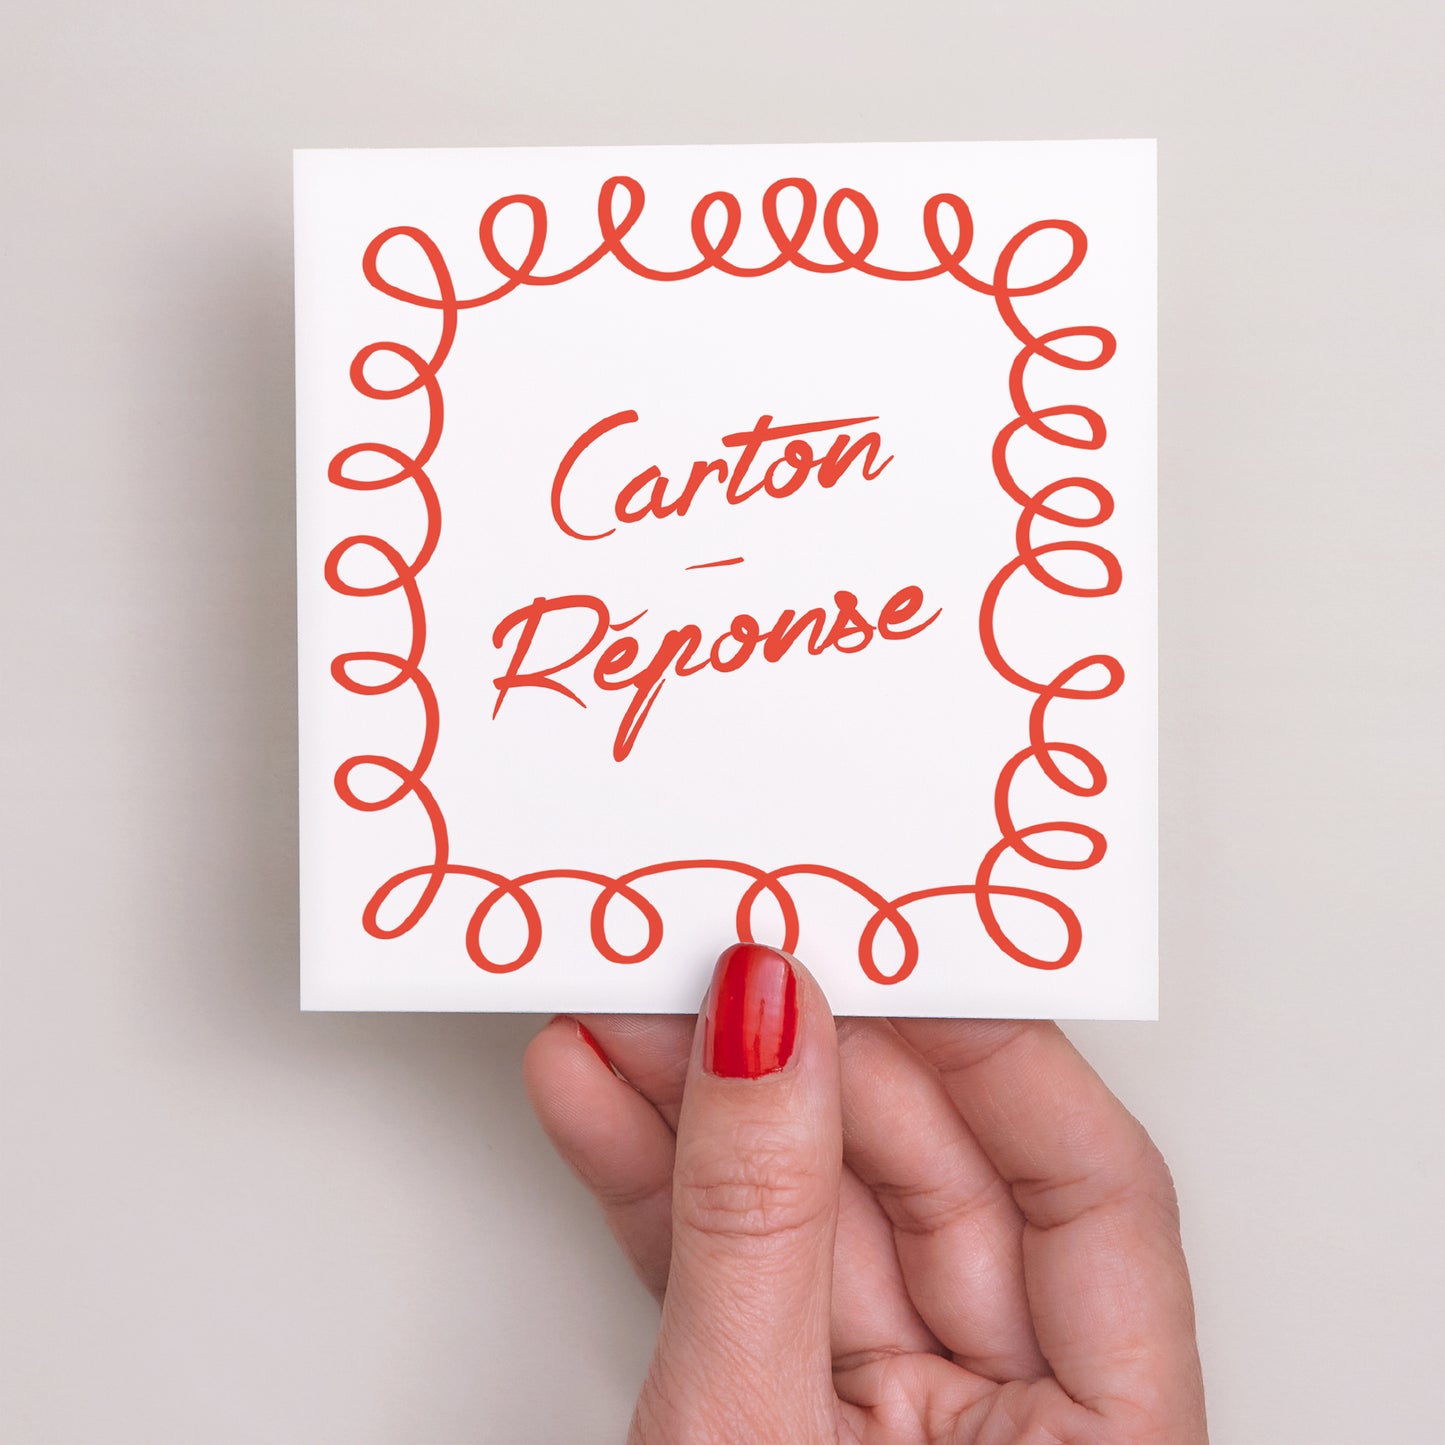 Carton
-
Réponse